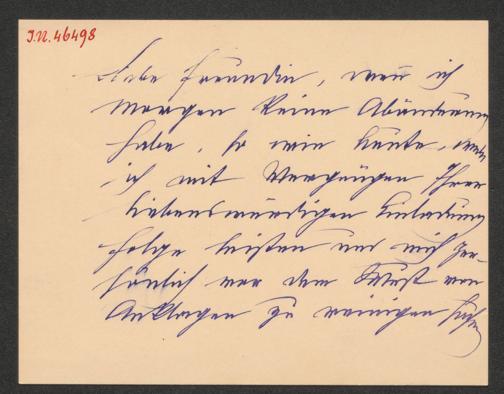 I.N. 46498
Liebe Freundin, wenn ich
morgen keine Abänderung
habe, so wie heute, werde
ich mit Vergnügen Ihrer
liebenswürdigen Einladung
Folge leisten und mich per-
sönlich von dem Wust von
Anklagen zu reinigen suchen